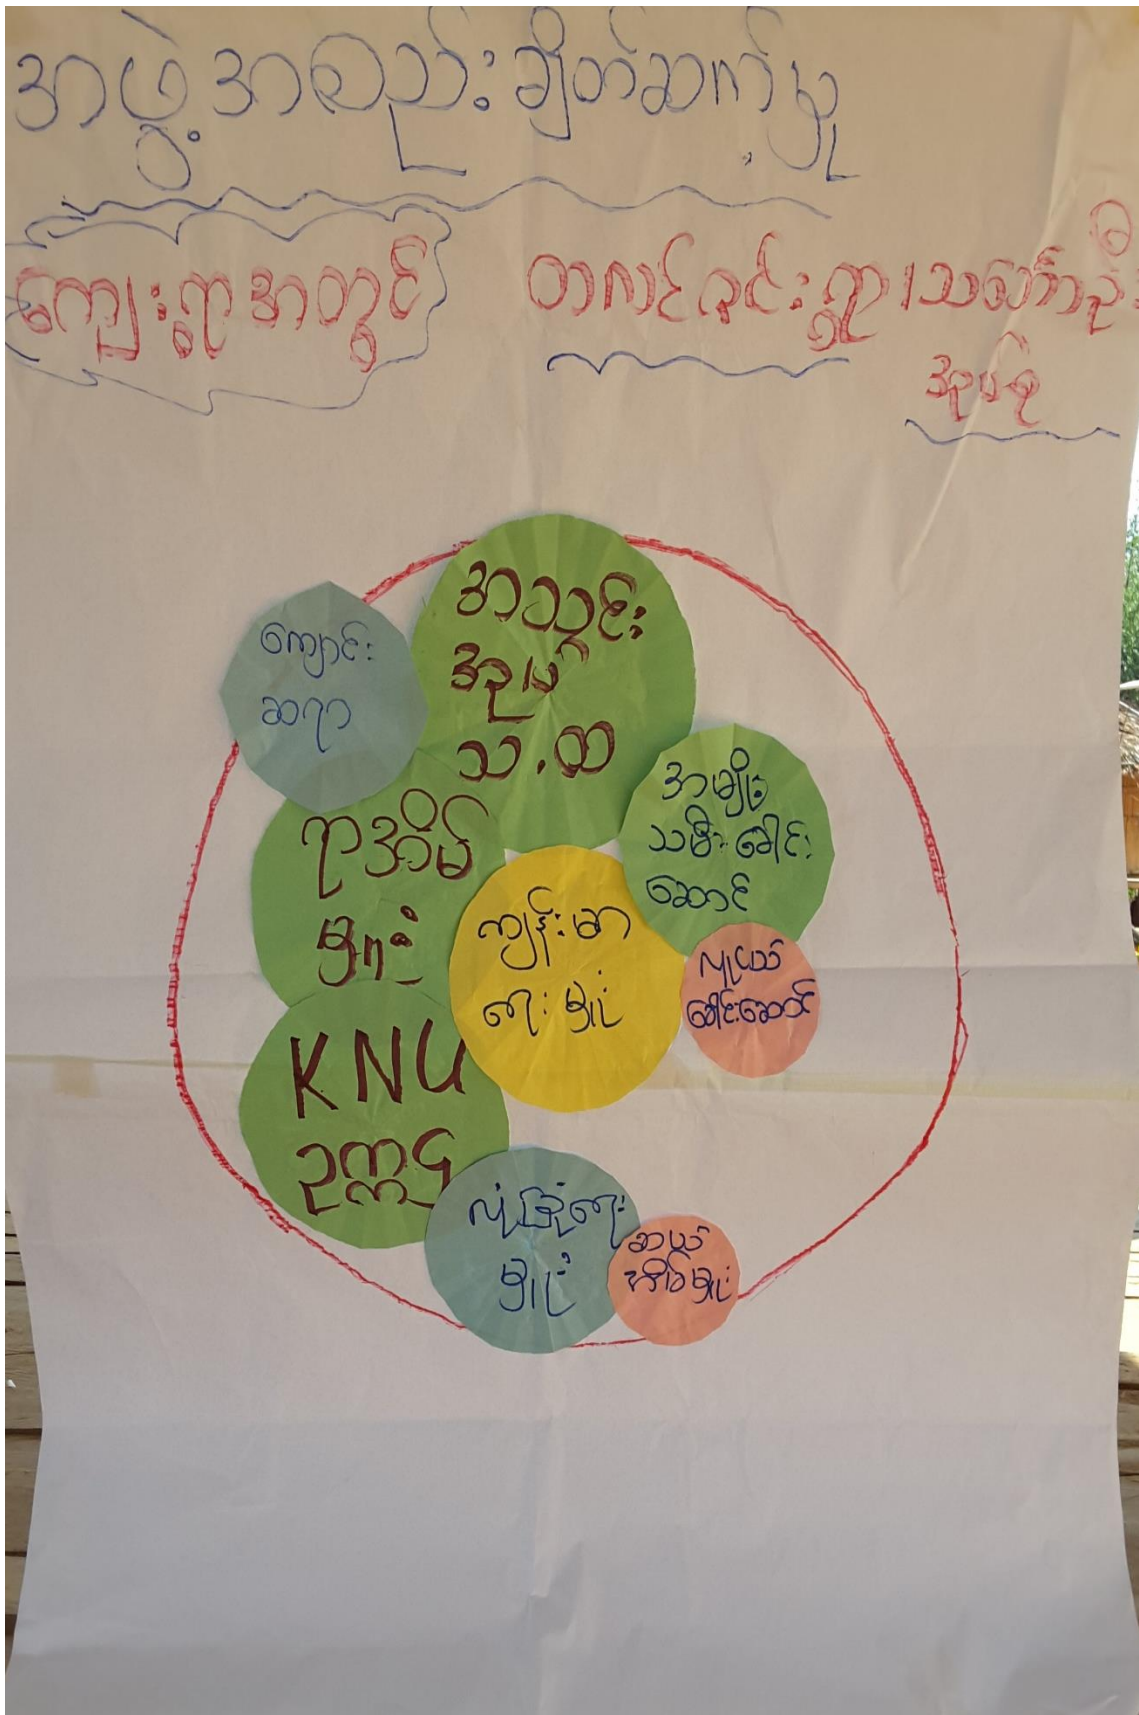 အဖွဲ့အစည်းချိတ်ဆက်မှု
ကျေးရွာအတွင်း
ရွာ၊သင်္ဘောဦး
အုပ်စု
ကျောင်း
ဆရာ
အသင်း
အုပ်
သ.ထ
အမျိုး
သမီးခေါင်း
ဆောင်
ရာအိမ်
မှူး
ကျန်းမာ
ရေးမှူး
လူငယ်
ခေါင်းဆောင်
KNU
ဥက္ကဋ္ဌ
လုံခြုံရေး
မှူး
ဆယ်
အိမ်မှူး